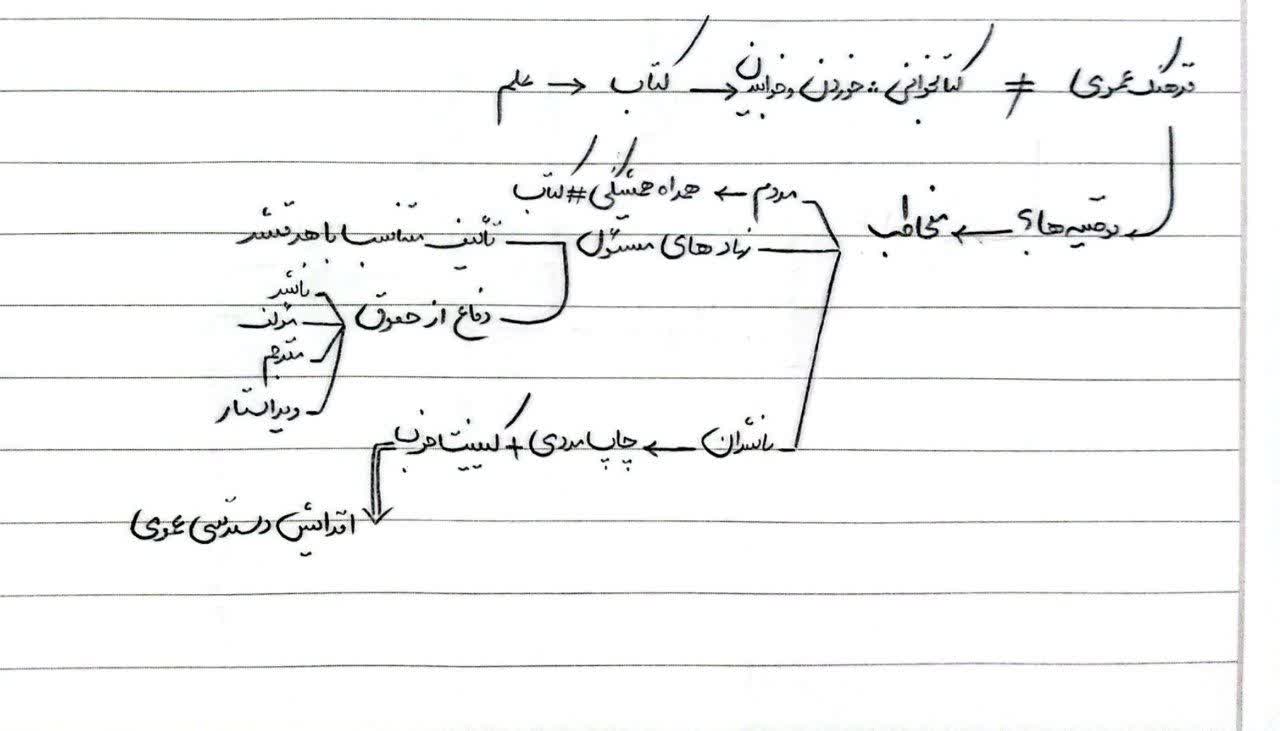 فرهنگ عمومی ≠ کتابخوانی: خوردن و خوابیدن → کتاب → علم
توصیه‌ها؟ ← مخاطب
مردم ← همراه همیشگی # کتاب
نهادهای مسئول
تألیف متناسب با هر قشر
دفاع از حقوق
ناشر
مؤلف
مترجم
ویراستار
ناشران ← چاپ مردمی + کیفیت خوب
افزایش دسترسی عمومی